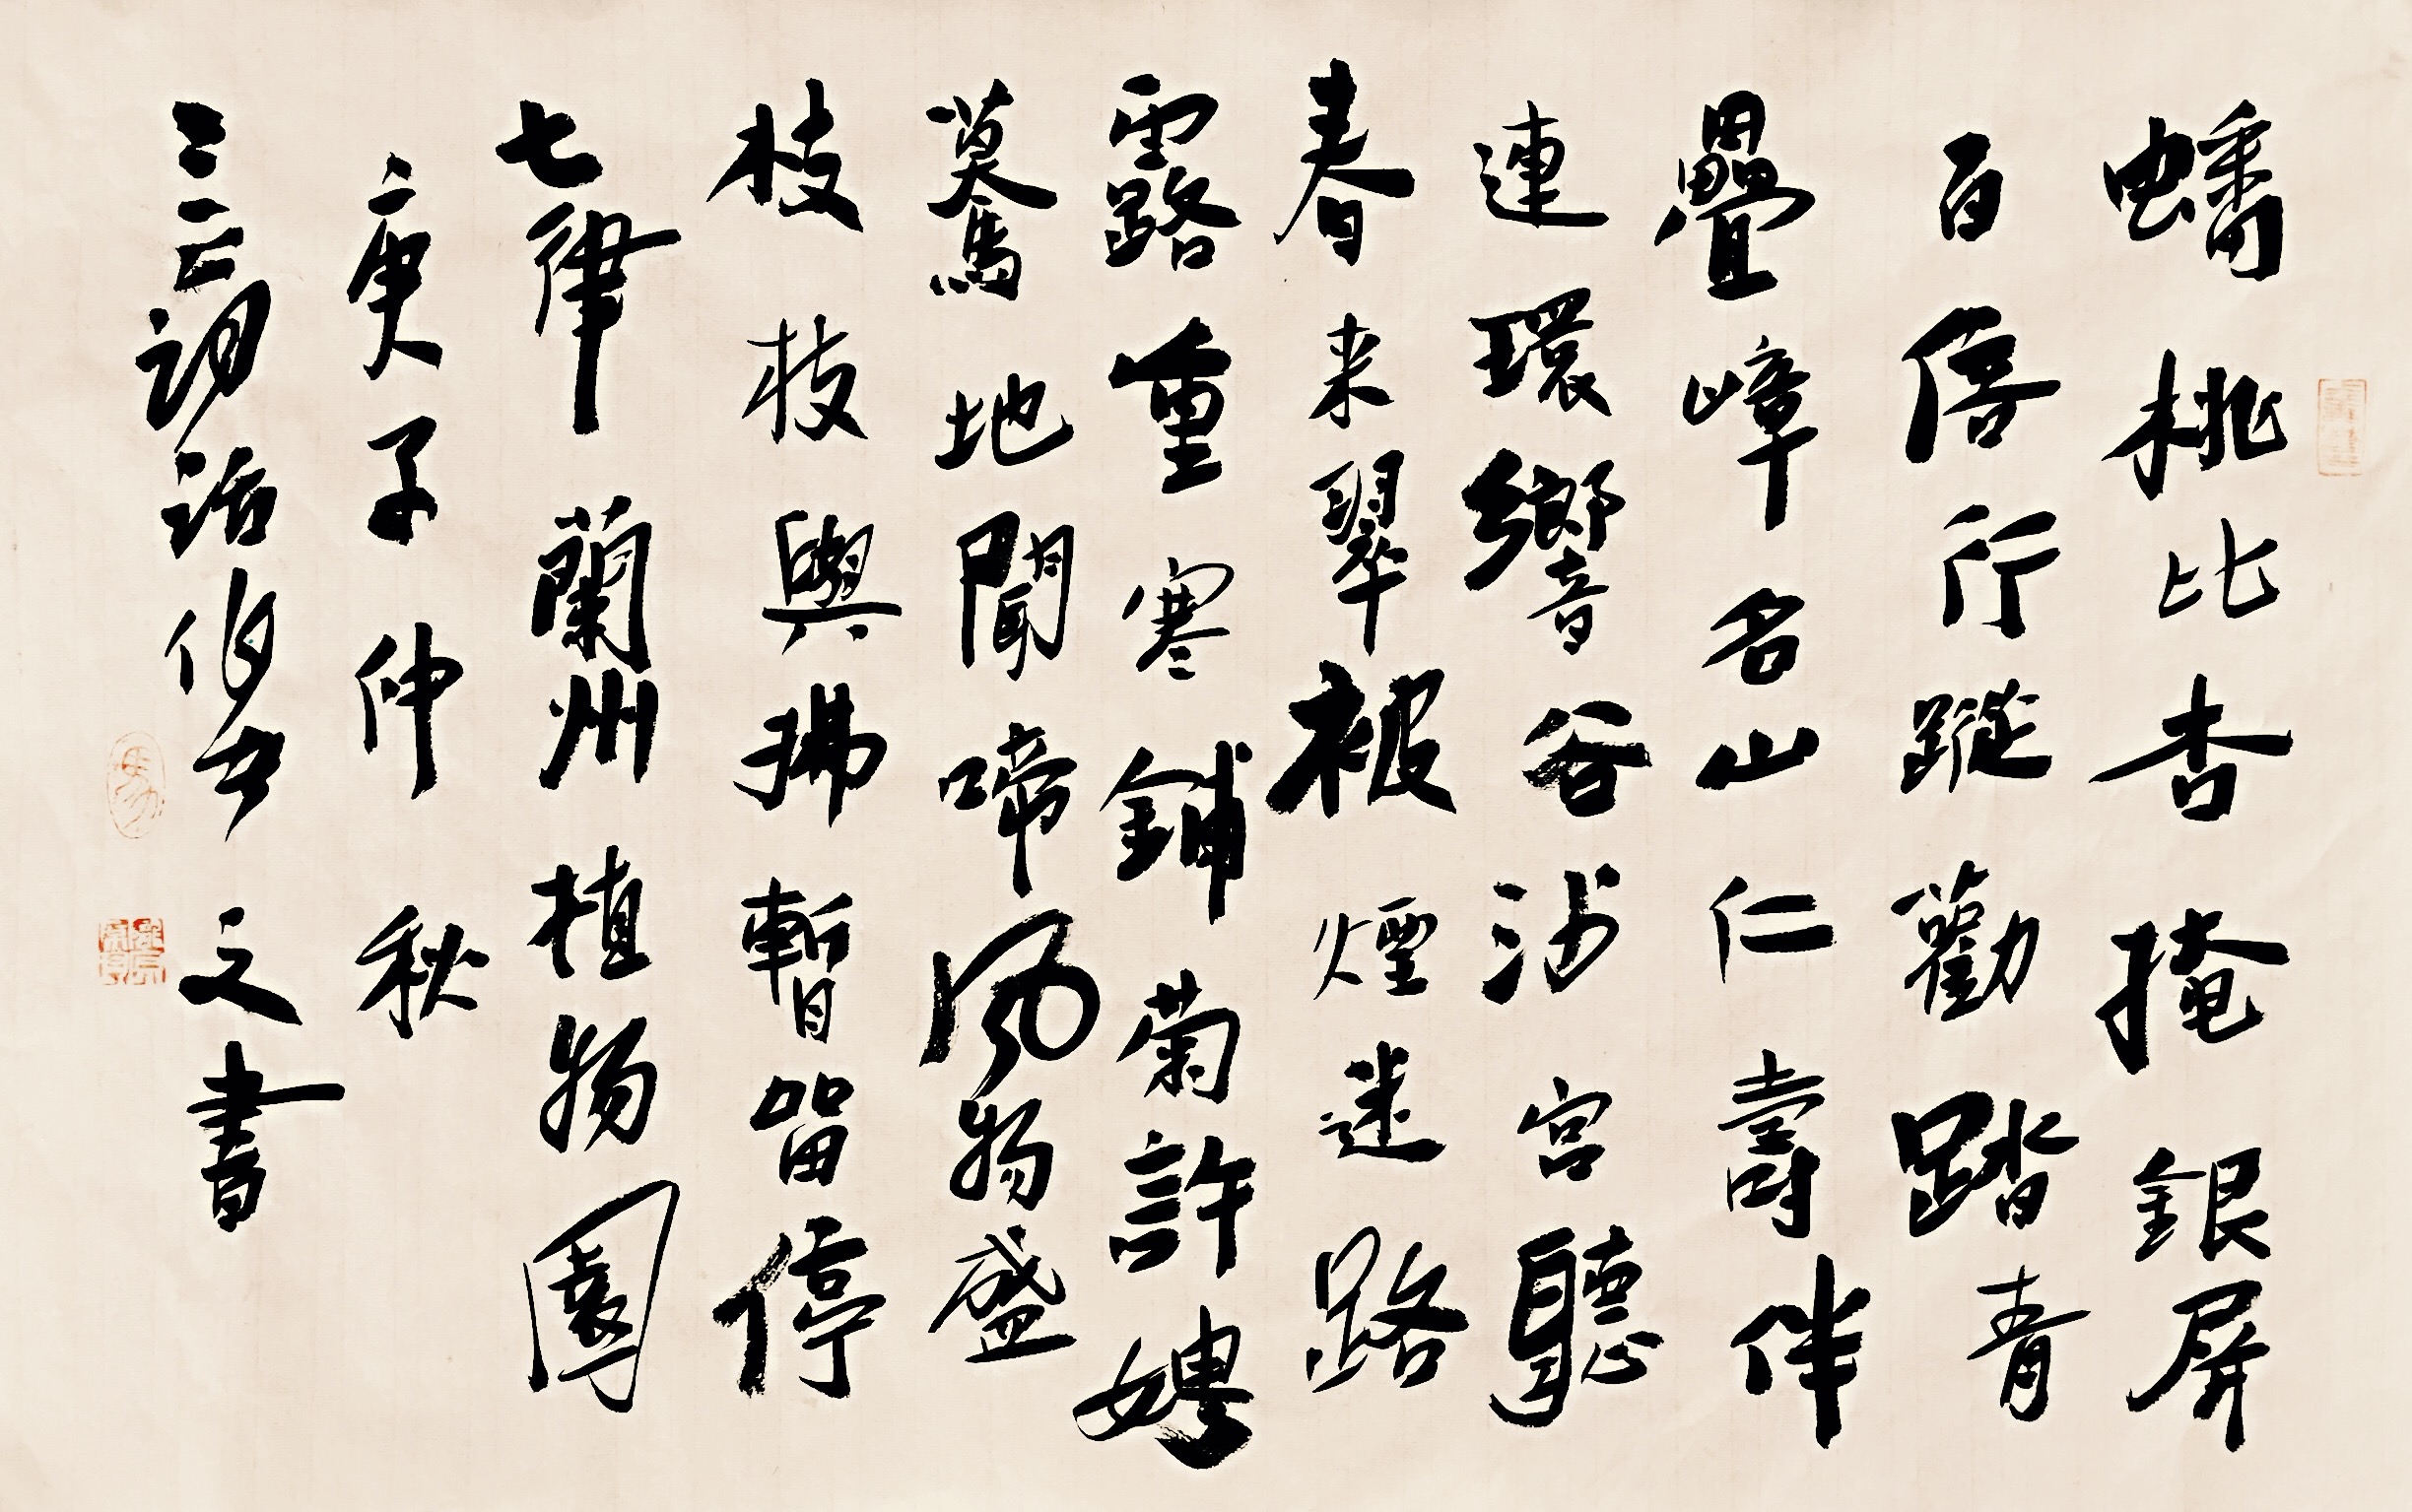 蟠桃比杏掩銀屏
百倍行蹤勸踏青
疊嶂名山仁壽伴
連環響谷沙宮聽
春来翠被煙迷路
露重寒鋪菊許娉
驀地聞啼风物盛
枝枝與拂暫留停
七律 蘭州植物園
庚子仲秋
之書